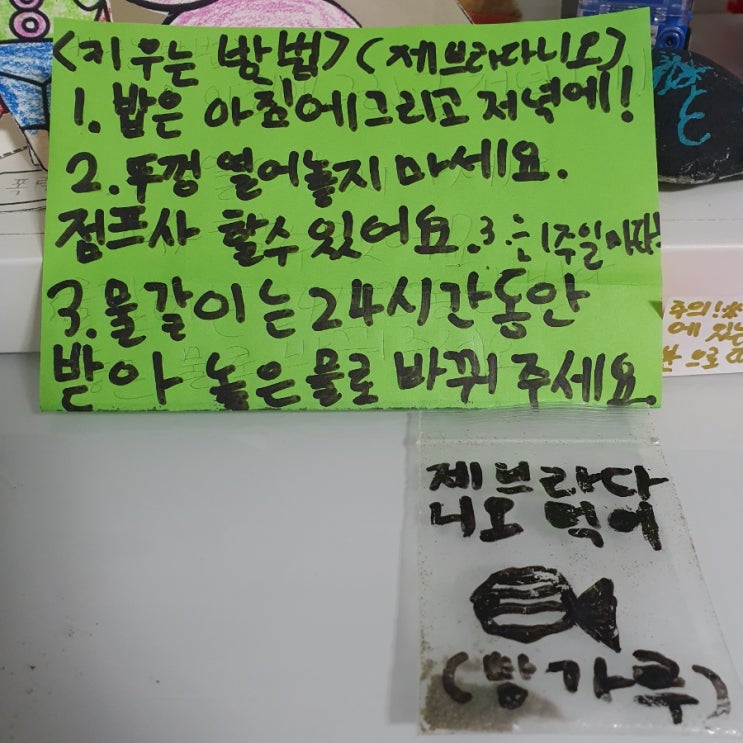 <키우는 방법> (제브라다니오)
1. 밥은 아침에 그리고 저녁에!
2. 뚜껑 열어놓지 마세요.
점프사 할수 있어요. 3.는 1주일마다!
3. 물갈이는 24시간동안
받아 놓은 물로 바꿔 주세요.
주의!※
에
으로
제브라다
니오 먹이
(빵가루)